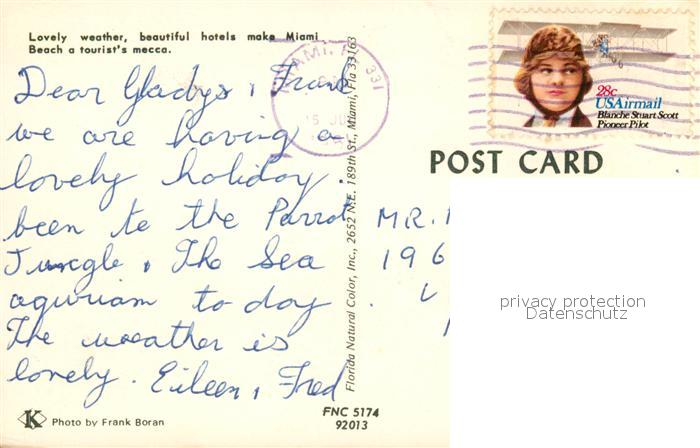 Lovely weather, beautiful hotels make Miami
Beach a tourist's mecca.
Dear Gladys & Frank
we are having a
lovely holiday.
been to the Parrot
Jungle & The Sea
aquriam to day.
The weather is
lovely. Eileen & Fred
K Photo by Frank Boran
Florida Natural Color, Inc., 2652 N.E. 189th St., Miami, Fla 33163
FNC 5174
92013
MIAMI, FL 331
28c
USAirmail
Blanche Stuart Scott
Pioneer Pilot
POST CARD
MR.
196
privacy protection
Datenschutz